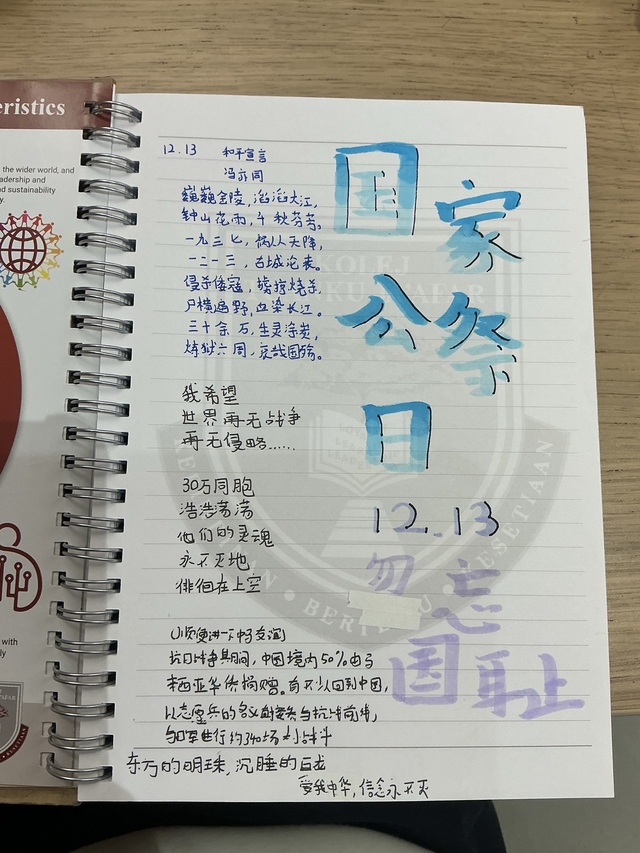 eristics
the wider world, and
adership and
nd sustainability
y.
with
ly
12.13 和平宣言
冯亦同
巍巍金陵，滔滔大江，
钟山花雨，千秋芬芳。
一九三七，祸从天降，
一二一三，古城沦丧。
侵杀倭寇，掳掠烧杀，
尸横遍野，血染长江。
三十余万，生灵涂炭，
炼狱六周，哀哉国殇。
我希望
世界再无战争
再无侵略……
30万同胞
浩浩荡荡
他们的灵魂
永不灭地
徘徊在上空
顺便进一下中马友谊
抗日战争期间，中国境内50%由马
来西亚华侨捐赠。有不少回到中国，
以志愿兵的名义直接参与抗战前线，
与日军进行约340场大小战斗
东方的明珠，沉睡的巨龙
爱我中华，信念永不灭
国家
公祭
日
12.13
勿忘
国耻
KOLEJ
BERTEKU
KESETIAAN